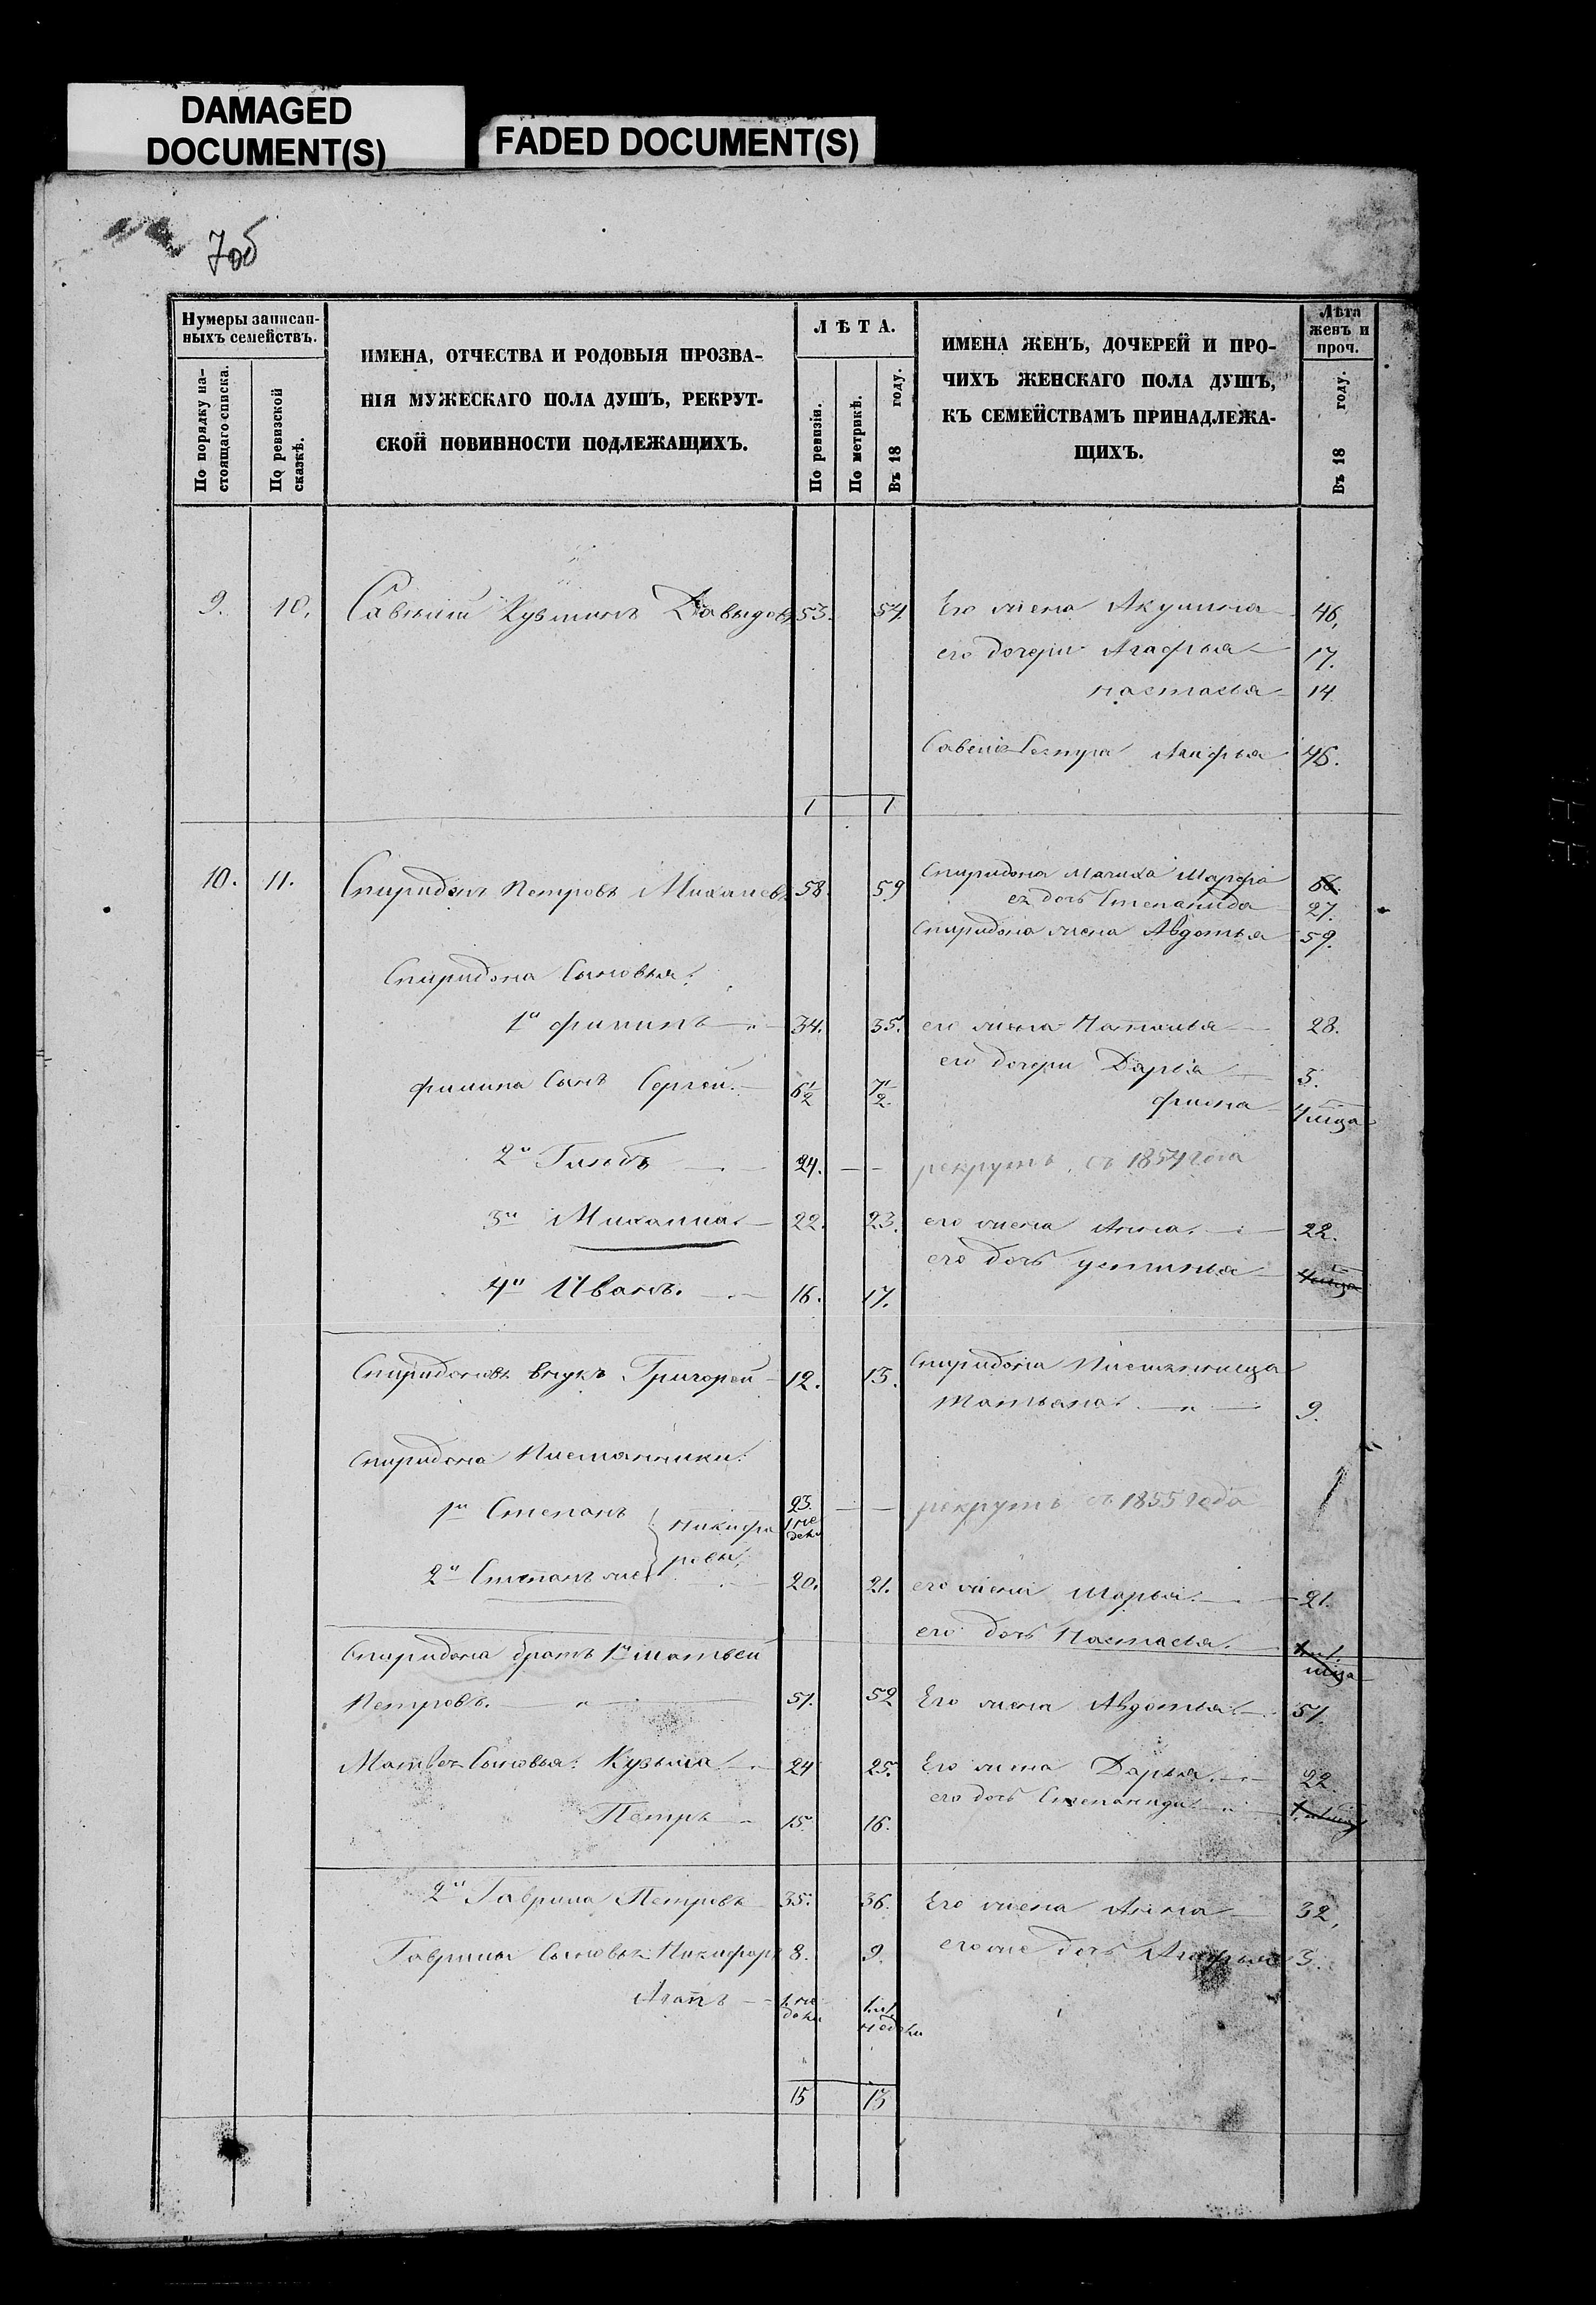 DAMAGED
DOCUMENT(S)
FADED DOCUMENT(S)
7об
Нумеры записан-
ныхъ семействъ.
По порядку на-
стоящаго списка.
По ревизской
сказкѣ.
ИМЕНА, ОТЧЕСТВА И РОДОВЫЯ ПРОЗВА-
НІЯ МУЖЕСКАГО ПОЛА ДУШЪ, РЕКРУТ-
СКОЙ ПОВИННОСТИ ПОДЛЕЖАЩИХЪ.
ЛѢТА.
По ревизіи.
По метрикѣ.
Въ 18 году.
ИМЕНА ЖЕНЪ, ДОЧЕРЕЙ И ПРО-
ЧИХЪ ЖЕНСКАГО ПОЛА ДУШЪ,
КЪ СЕМЕЙСТВАМЪ ПРИНАДЛЕЖА-
ЩИХЪ.
Лѣта
женъ и
проч.
Въ 18 году.
9. 10. Савелий Кузминъ Давыдовъ 53. 54. Его жена Акулина 46.
его дочери Агафья 17.
настасья 14
Савелія Сестра 46.
1 1
10. 11. Спиридонъ Петровъ Михалевъ 58. 59 Спиридона Мачиха Марфа 66.
еѣ дочь Степанида 27.
Спиридона жена Авдотья 59.
Спиридона Сыновья:
1й филипъ 34. 35. его жена Наталья 28.
филипа Сынъ Сергей. 6½ 7½ его дочери Дарья 3.
фиона 4 мца
2й Глебъ 24. рекрутъ съ 1854 года
3й Михаила 22. 23. его жена Анна. 22.
его дочь устинья 4 мца
4й Иванъ. 16. 17.
Спиридоновъ внукъ Григорей 12. 13. Спиридона Племянница
татьяна 9.
Спиридона Племянники:
1й Степанъ 23. рекрутъ съ 1855 года
никифо
ровы.
1 не
дели
2й Степанъ же 20. 21. его жена Марья. 21.
его дочь Настасья.
Спиридона братъ 1й матвей
Петровъ. 51. 52 Его жена Авдотья 51.
Матвея Сыновья: Кузьма 24 25. Его жена Дарья. 22.
его дочь Степанида
Петръ 15. 16.
2й Гаврила Петровъ 35. 36. Его жена Анна 32.
Гаврилы Сыновья: Никифоръ 8. 9. его же дочь Агафья 3.
Агапъ 1 не
дели
1. ил.
недели
15 13